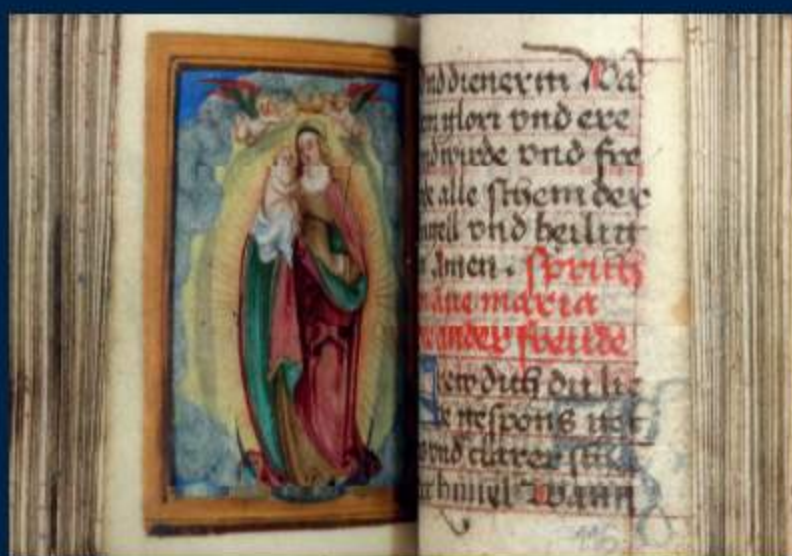 vnd dienerin Wa
en glori vnd ere
nd wirde vnd fre
alle schem der
engell vnd heilig
Amen. Sprich
ain aue maria
ander freude
frew dich du lie
gespons
vnd clarer
hymel Wann
116